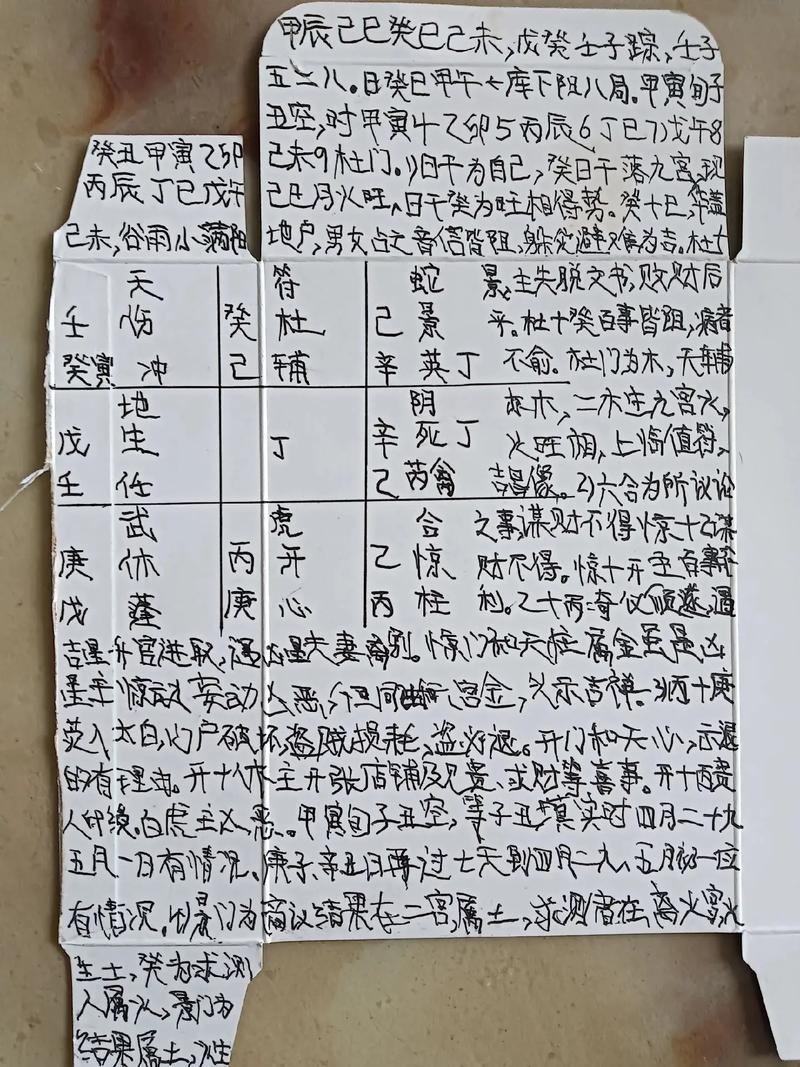 甲辰己巳癸巳己未，戊癸壬子踪，壬子
五二八。日癸巳甲午七库下阻八局。甲寅旬子
丑空，时甲寅4乙卯5丙辰6丁巳7戊午8
己未9杜门。1)日干为自己，癸日干落九宫，现
己巳月火旺，日干癸为旺相得势。癸十己，华盖
地户，男女占之音信皆阻，躲灾避难为吉。杜十
癸丑甲寅乙卯
丙辰丁巳戊午
己未，谷雨小满阳
天 符 蛇
壬 伤 癸 杜 己 景
癸寅 冲 己 辅 辛 英 丁
地 阴
戊 生 丁 辛 死 丁
壬 任 己 芮禽
武 虎 合
庚 休 丙 开 乙 惊
戊 蓬 庚 心 丙 柱
景，主失脱文书，败财后
平。杜十癸百事皆阻，病者
不愈。杜门为木，天辅
木，二木生九宫火，
火旺相，上临值符，
吉。2)六合为所议论
之事，谋财不得惊十乙谋
财不得。惊十开主百事不
利。乙十丙奇仪顺遂，遇
吉星升官进取，遇凶星夫妻离别。惊门和天柱属金虽是凶
星主惊恐妄动凶恶，宫金，尖示吉祥。3)丙十庚
荧入太白，门户破坏，盗贼损耗，盗必退。开门和天心，示退
的有理由。开十休主开张店铺及见贵、求财等喜事。开十丙贵
人印绶。白虎主凶恶。甲寅旬子丑空，等子丑填实时四月二十九
五月一日有情况。庚子、辛丑日等过七天到四月二九、五月初一位
有情况。4)景门为商议结果在二宫，属土，求测者在离火宫，火
生土，癸为求测
人属火，景门为
结果属土，火生